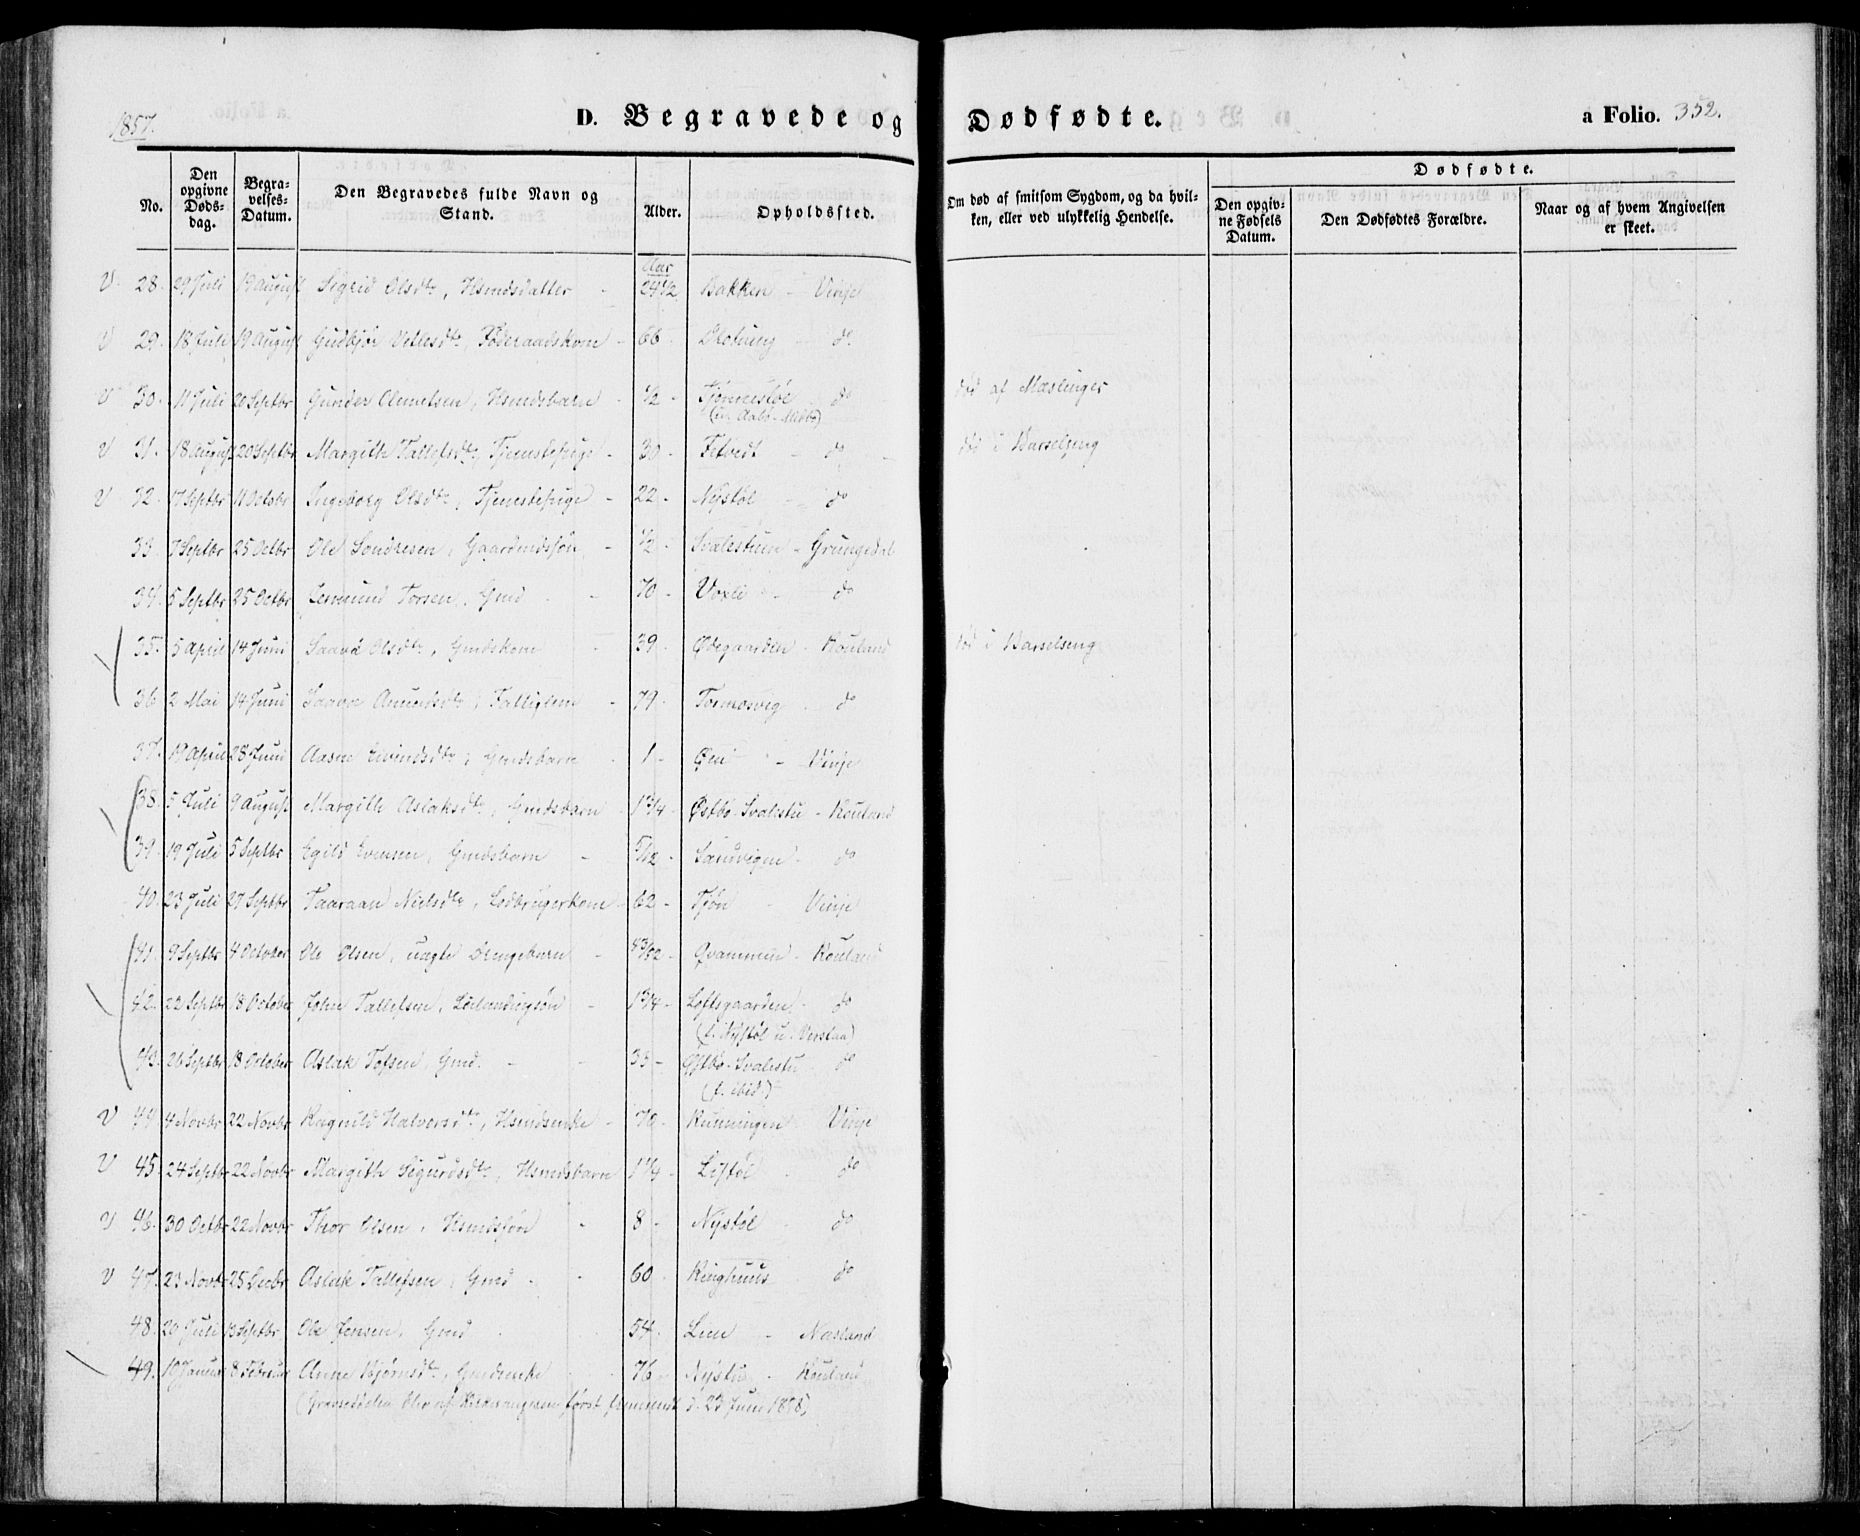 1857.
D. Begravede og Dødfødte.
a Folio. 352.
No.
Den opgivne Døds-dag.
Begra-velses-Datum.
Den Begravedes fulde Navn og Stand.
Alder.
Opholdssted.
Om død af smitsom Sygdom, og da hvil-ken, eller ved ulykkelig Hendelse.
Dødfødte.
Den opgiv-ne Fødsels Datum.
Den Dødfødtes Forældre.
Naar og af hvem Angivelsen er skeet.
Aar
V. 28. 29 Juli 19 August Sigrid Olsdtr, Hsmdsdatter - 24 1/2 Bakken - Vinje
V 29. 18 Juli 19 August Gudbjør Vetlesdtr, Føderaadskone - 66 - do
V 30. 11 Juli 20 Septbr Gunder Hsmdsbarn - 1/2 do død af Mæslinger
V 31. 18 August 20 Septbr Margith Tallefsdtr, Tjenestepige - 30 - Fetvedt - do - død i Barselseng
V 32. 17 Septbr 11 Octobr Ingeborg Olsdtr, Tjenestepige - 22 - Nystøl - do
33. 7 Septbr 25 Octbr Ole Sondresen, Gaardmdssøn - 1/2 - Svalestuen - Grungedal
34. 5 Septbr 25 Octbr Torsen, Gmd - 70 - Voxli - do
35. 5 April 14 Juni Saavè Olsdtr, Gmdskone - 39 - Ødegaarden - Rouland død i Barselseng
36 2 Mai 14 Juni Saave - 79 - Tormosvig - do
37. 19 April 28 Juni Aasne Eivindsdtr, Gmdsbarn - 1 - Øen - Vinje
38. 5 Juli 9 August Margith Aslaksdtr, Gmdsbarn - 1 3/4 - Østbø-Svalestu - Rouland
39. 19 Juli 5 Septbr Egild Evensen, Gmdsbarn - 5/12 - Sandvigen - do
40. 23 Juli 27 Septbr Taaraan Nielsdtr, 62 - Tjøn - Vinje
41. 9 Septbr 4 October Ole Olsen, uægte - 4 3/12 - Qvammen - Rouland
42. 22 Septbr 18 October John Tallefsen, - 1 3/4 - Loftsgaarden - do
(f. Nystøl u. Verstaa)
43. 26 Septbr 18 October Aslak Tofsen, Gmd. - 35 - Østbø-Svalestu do
(f. ibid.)
V 44. 4 Novbr 22 Novbr Ragnild Halvorsdtr, Hsmdsenke - 70 - Runningen Vinje
V 45. 24 Septbr 22 Novbr Margith Sigurdsdtr, Hsmdsbarn 1 1/4 - Listøl - do
V 46. 30 Octbr 22 Novbr Thor Olsen, Hsmdssøn - 8 - Nystøl - do
V 47. 23 Novbr 25 Decbr Aslak Tallefsen, Gmd - 60 - Ringhuus do
48. 20 Juli 13 Septbr Ole Jensen, Gmd - 54 - Lien - Næsland
49. 10 Januar 8 Februar Anne Bjørnsdtr, Gmdsenke 76 - Nystu - Rouland
først fremsendt d. 23 Juni 1878)